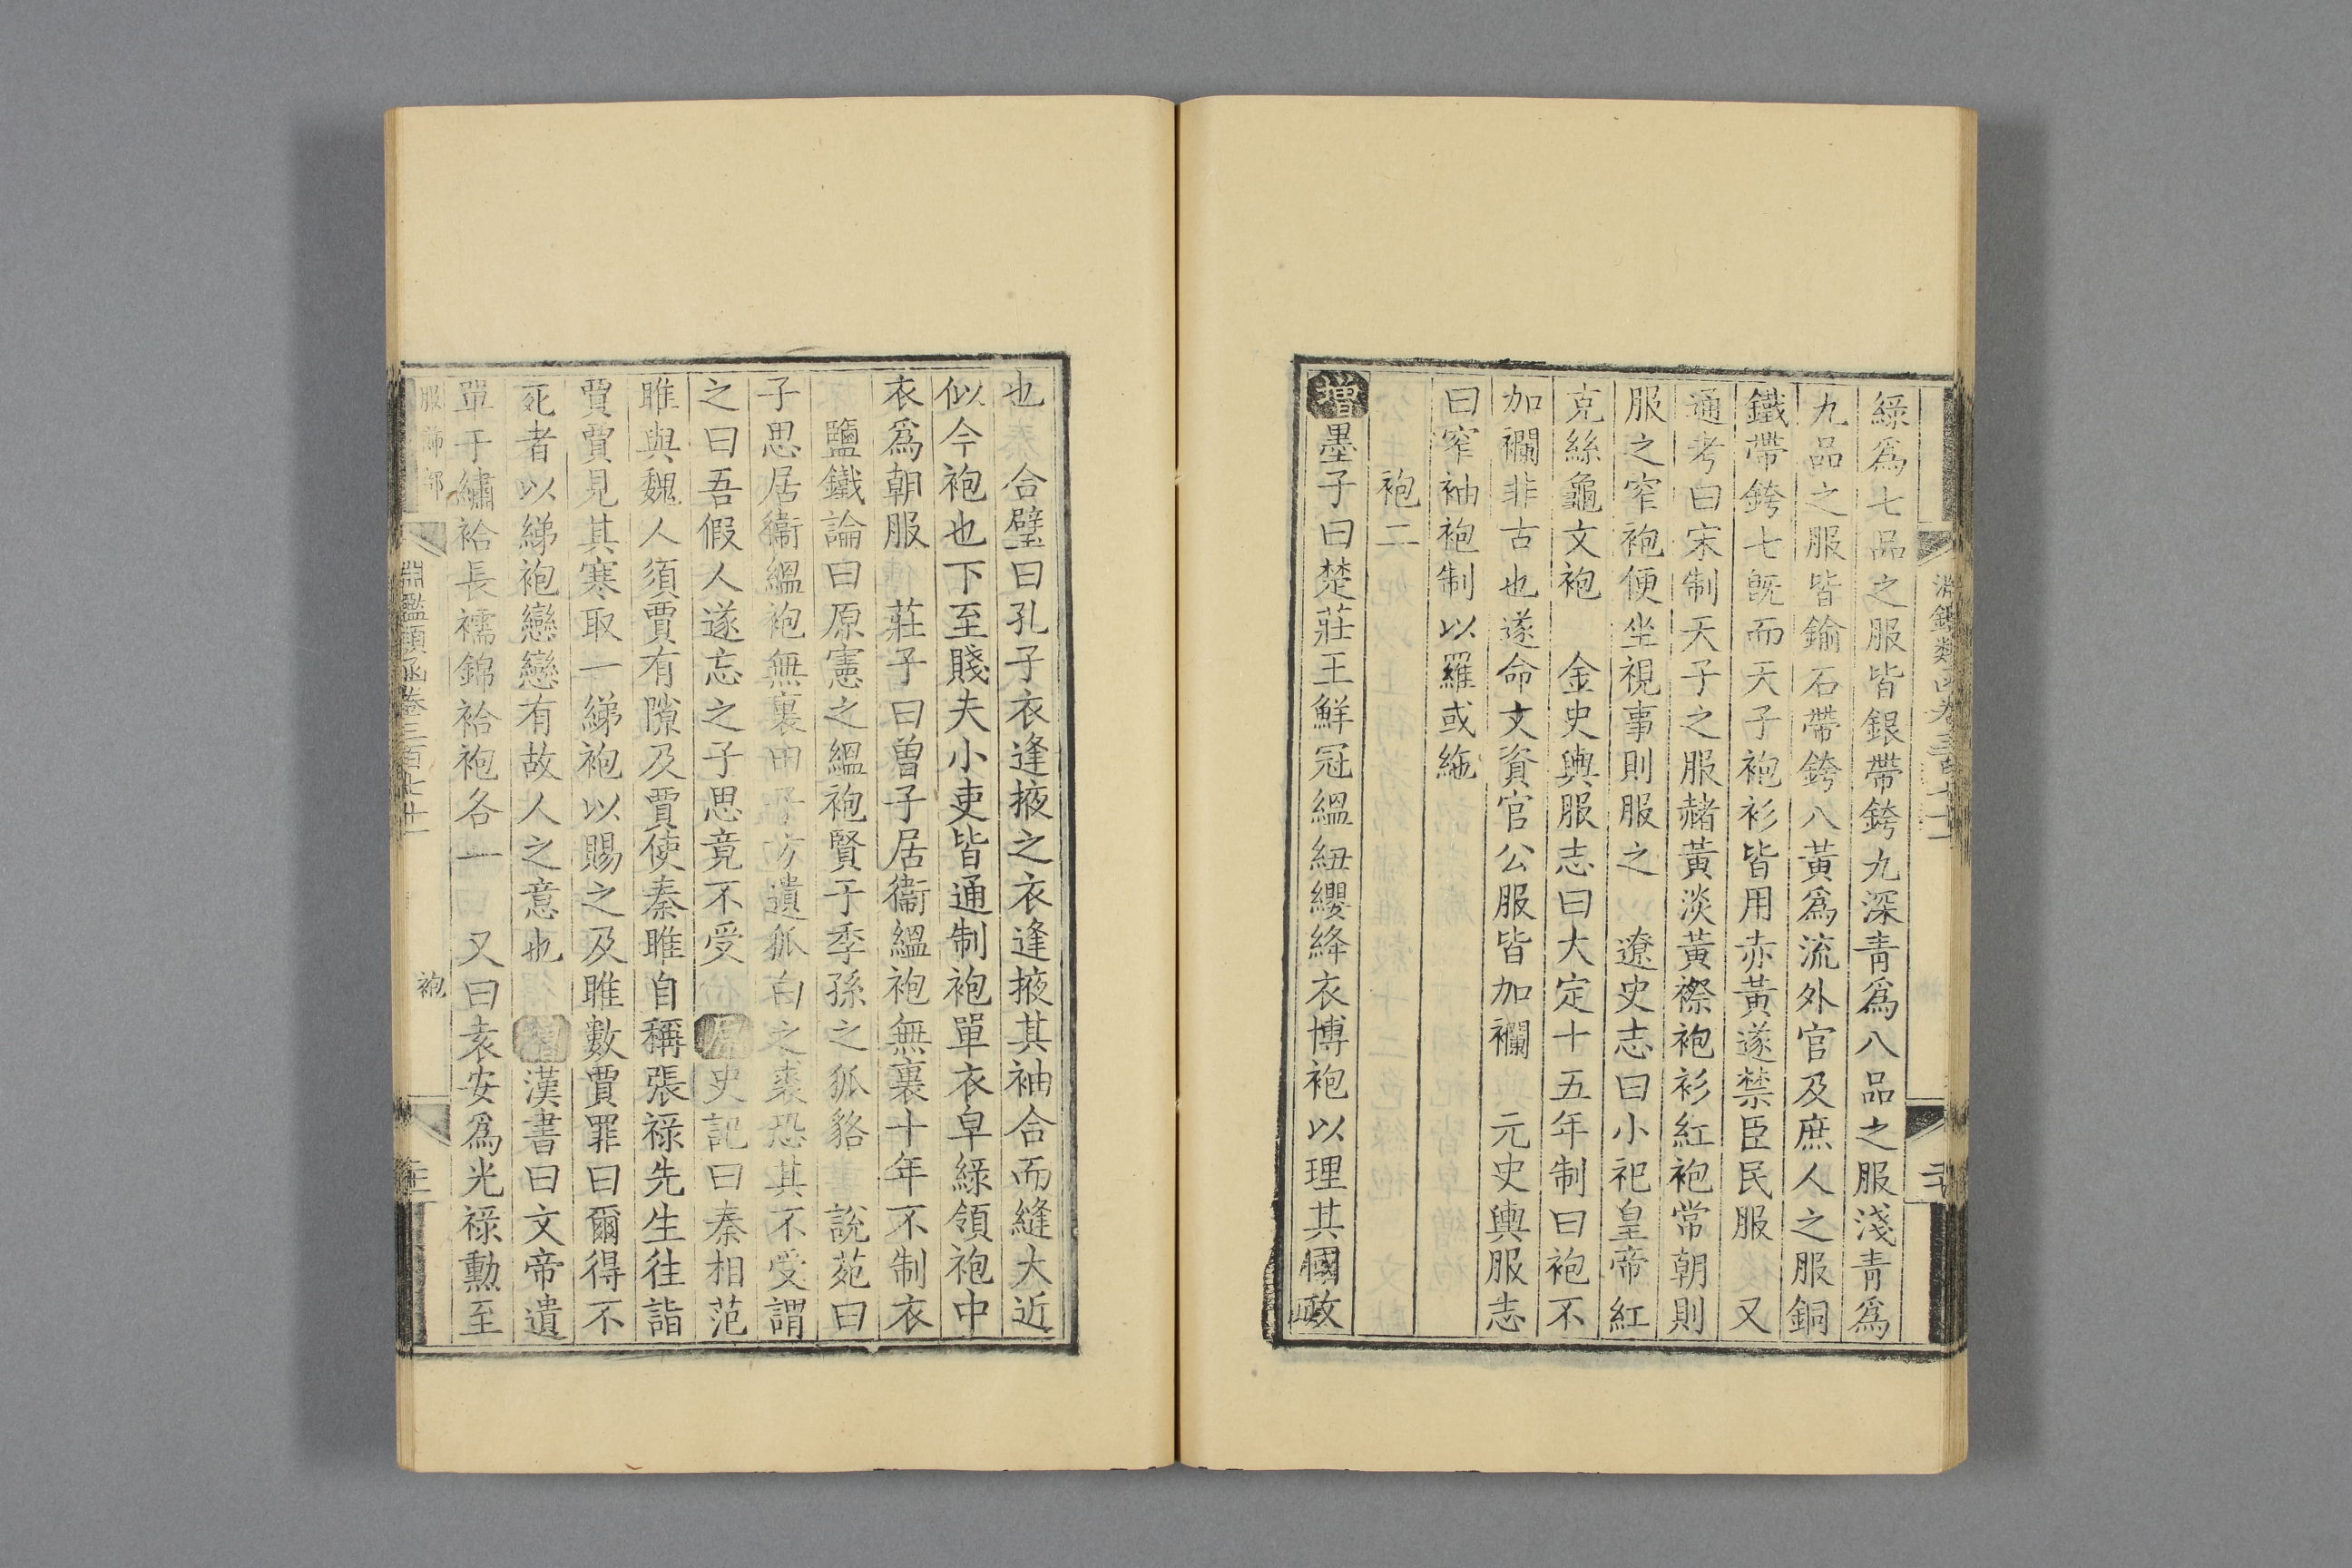 綠爲七品之服皆銀帶銙九深靑爲八品之服淺靑爲
九品之服皆鍮石帶銙八黃爲流外官及庶人之服銅
鐵帶銙七旣而天子袍衫皆用赤黃遂禁臣民服　又
通考曰宋制天子之服赭黃淡黃襟袍衫紅袍常朝則
服之窄袍便坐視事則服之　遼史志曰小祀皇帝紅
克絲龜文袍　金史輿服志曰大定十五年制曰袍不
加襴非古也遂命文資官公服皆加襴　元史輿服志
曰窄袖袍制以羅或絁
袍二
增墨子曰楚莊王鮮冠縕紐纓絳衣博袍以理其國政
也　合璧曰孔子衣逢掖之衣逢掖其袖合而縫大近
似今袍也下至賤夫小吏皆通制袍單衣皁綠領袍中
衣爲朝服　莊子曰曾子居衞縕袍無裏十年不制衣
鹽鐵論曰原憲之縕袍賢于季孫之狐貉　說苑曰
子思居衞縕袍無裏田子方遺狐白之裘恐其不受謂
之曰吾假人遂忘之子思竟不受　原史記曰秦相范
雎與魏人須賈有隙及賈使秦雎自稱張祿先生往詣
賈賈見其寒取一綈袍以賜之及雎數賈罪曰爾得不
死者以綈袍戀戀有故人之意也　增漢書曰文帝遺
單于繡袷長襦錦袷袍各一　又曰袁安爲光祿勳至
服飾部
淵鑑類函卷三百七十一
袍